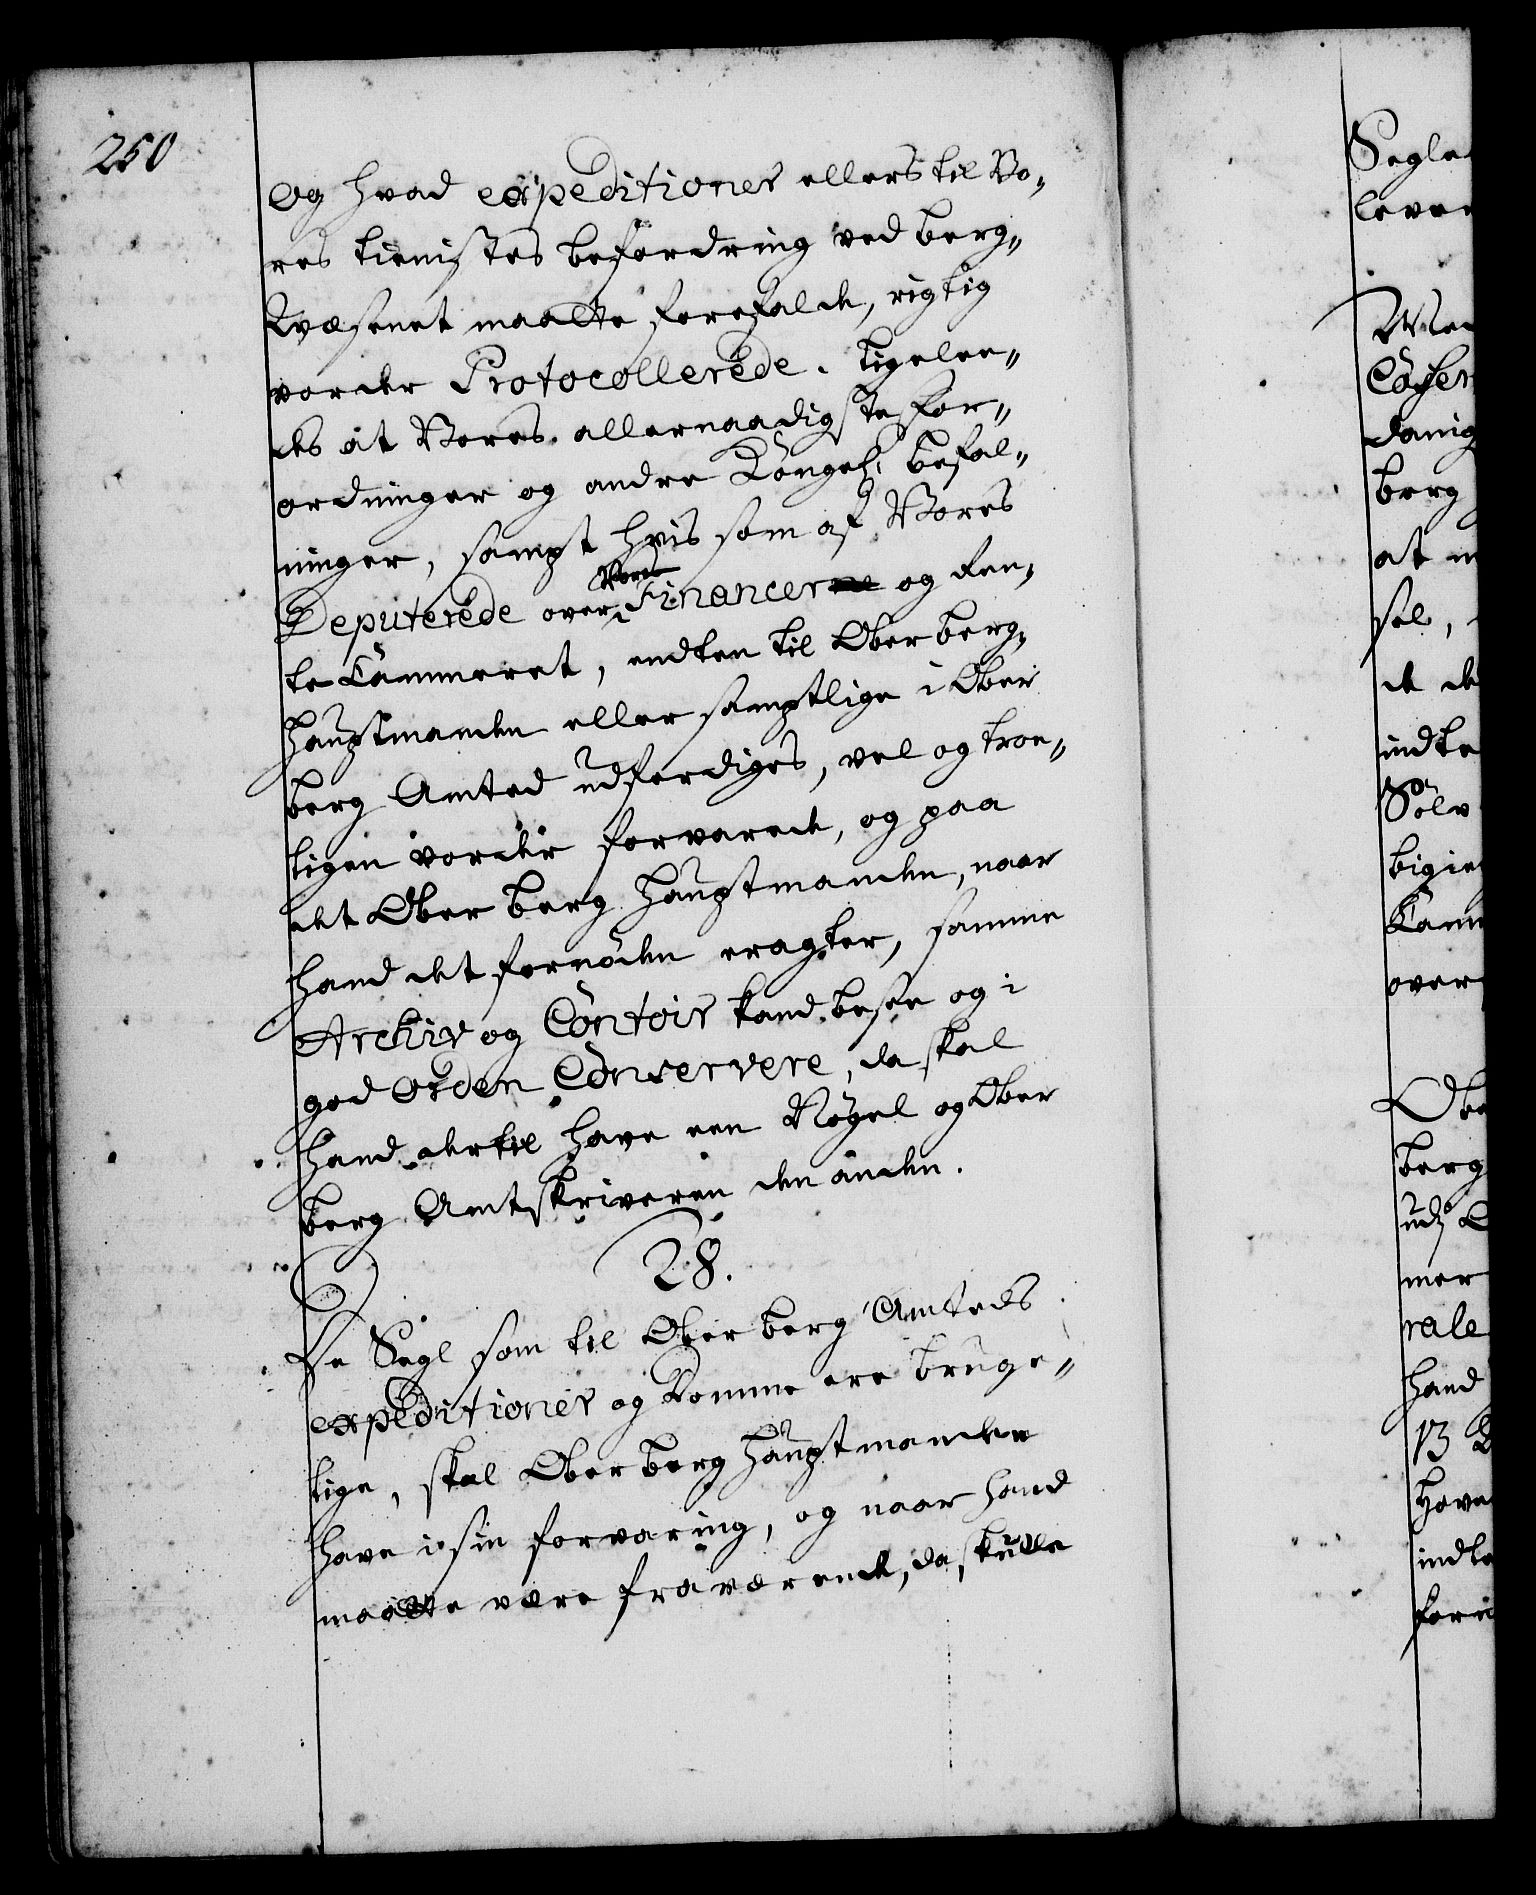 250
Og hvad expeditioner ellers til Vo-
res tienistes befordring ved berg-
Kvæsenet maatte forefalde, rigtig
vorder Protocollerede. Ligelee-
des at Vores allernaadigste for-
ordninger og andre Kongel. befal-
ninger, sampt hvis som af Vores
Deputerede over Vores Financer og Ren-
te Cammeret, endten til Ober berg-
Hauptmanden eller samptlige i Ober
berg Amted udferdiges, vel og troe-
ligen vorder forvarede, og paa
det Ober berg Hauptmanden, naar
hand det fornöden eragter, samme
Archiv og Contoir kand besee og i
god Orden Conservere, da skal
hand dertil have een Nögel og Ober
berg Amtskriveren den anden.
28.
De Segl som til Ober berg Amteds
expeditioner og Domme ere bruge-
lige, skal Ober berg Hauptmanden
have i sin forvaring, og naar hand
maatte være fraværende, da skulle
Segle
leve
Cas
danig
berg
at
sel,
de de
indte
Sölv
Cam
over
Obe
berg
mer
rale
hand
13
Have
indte